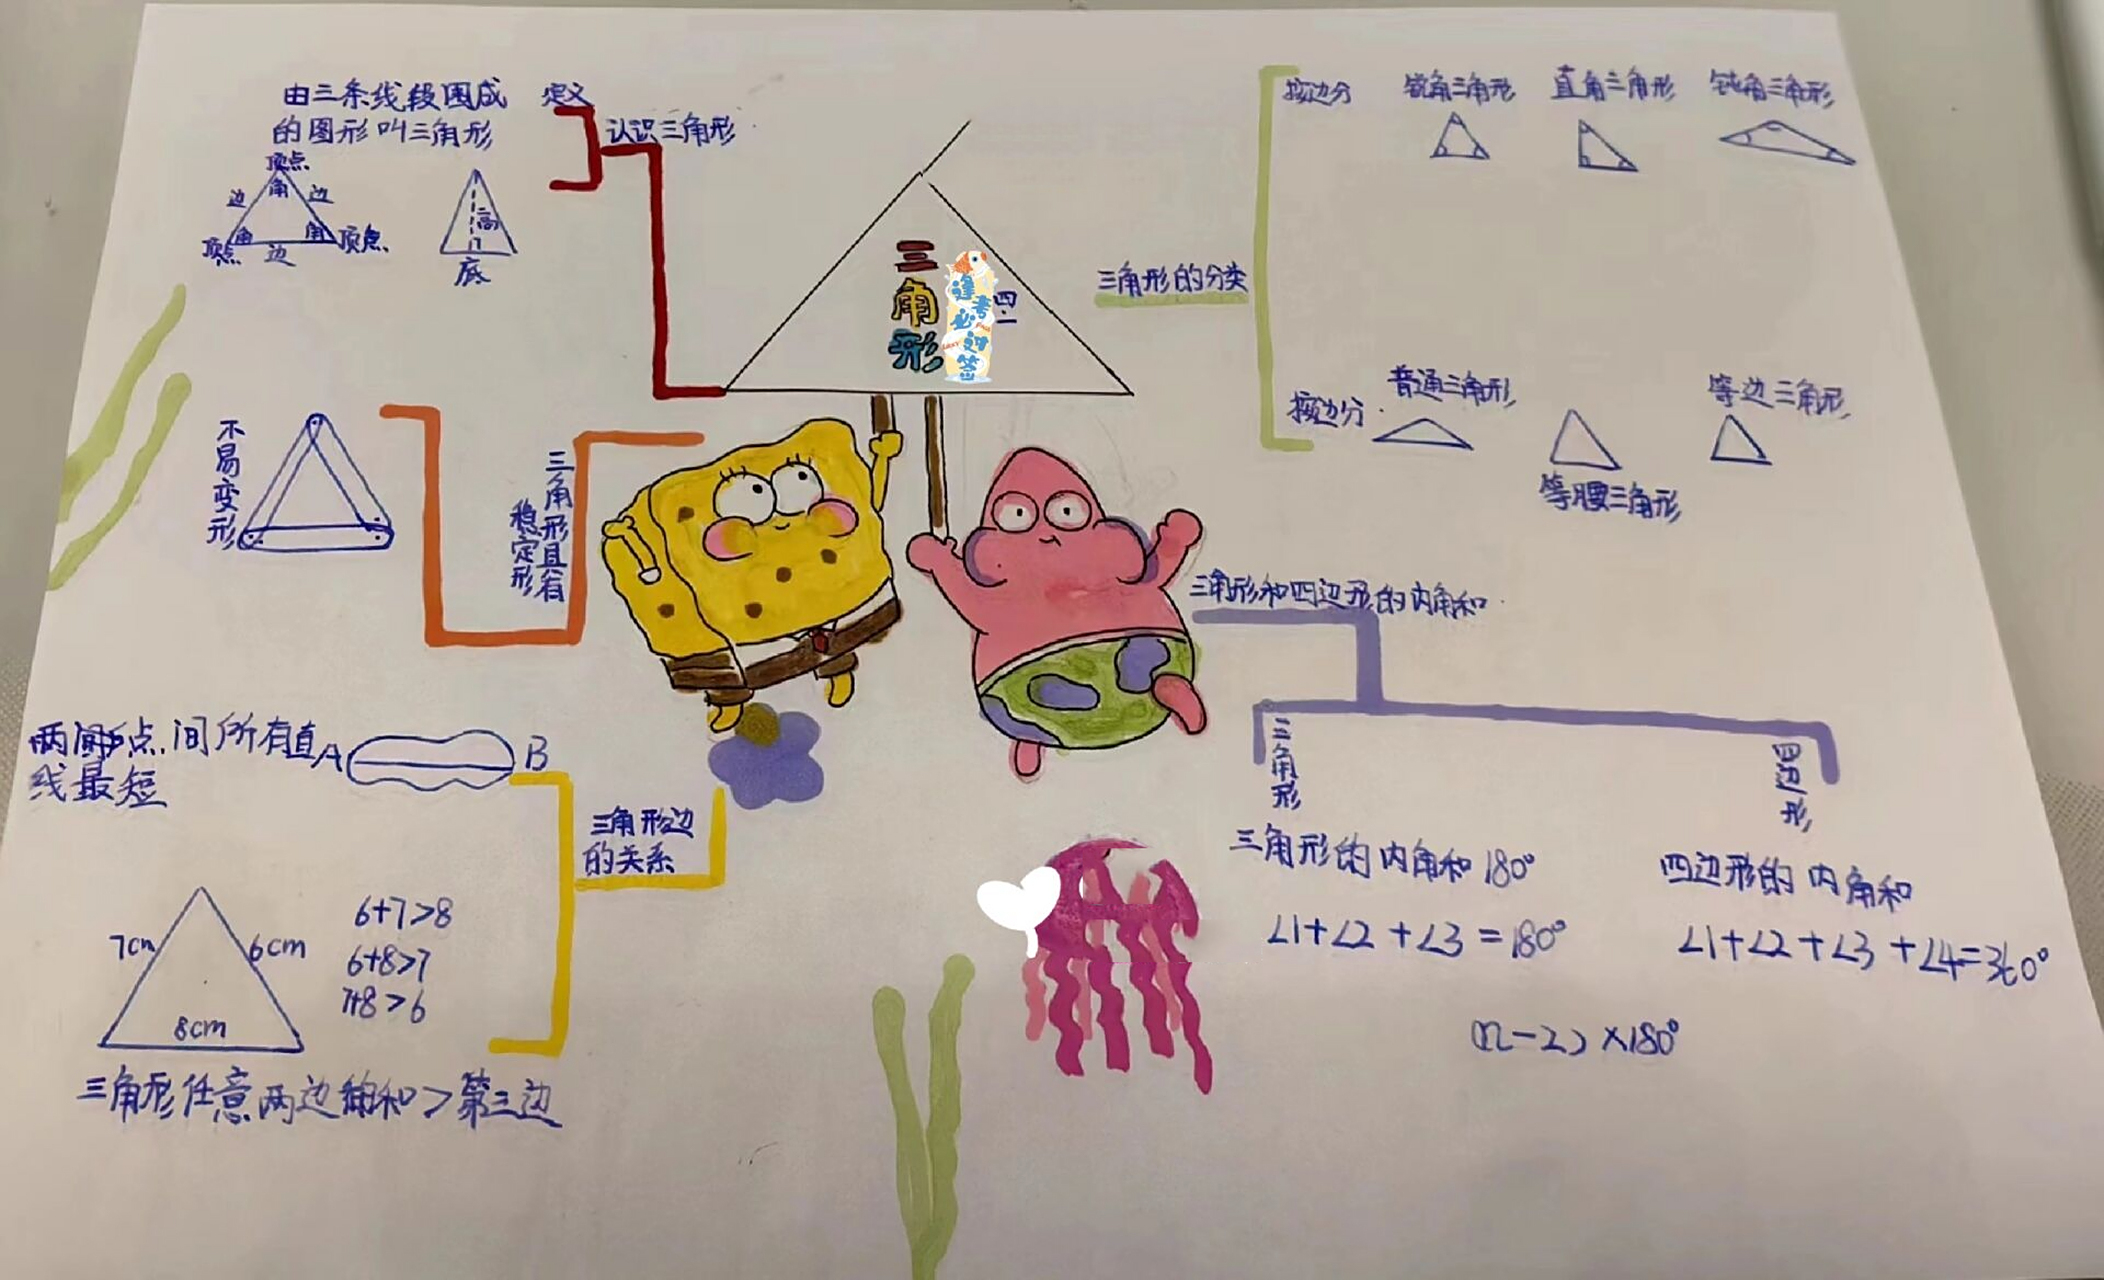 由三条线段围成
的图形叫三角形
定义
认识三角形
顶点
角
边
边
顶点
角
角
顶点
边
高
底
三角形
逢考必过签
四.二
三角形的分类
按边分
锐角三角形
直角三角形
钝角三角形
按边分
普通三角形
等腰三角形
等边三角形
不易变形
三角形具有
稳定形
三角形和四边形的内角和
三角形
四边形
三角形的内角和180°
∠1+∠2+∠3=180°
四边形的内角和
∠1+∠2+∠3+∠4=360°
(n-2)×180°
点间所有直
线最短
A
B
三角形边
的关系
7cm
6cm
8cm
6+7>8
6+8>7
7+8>6
三角形任意两边和>第三边